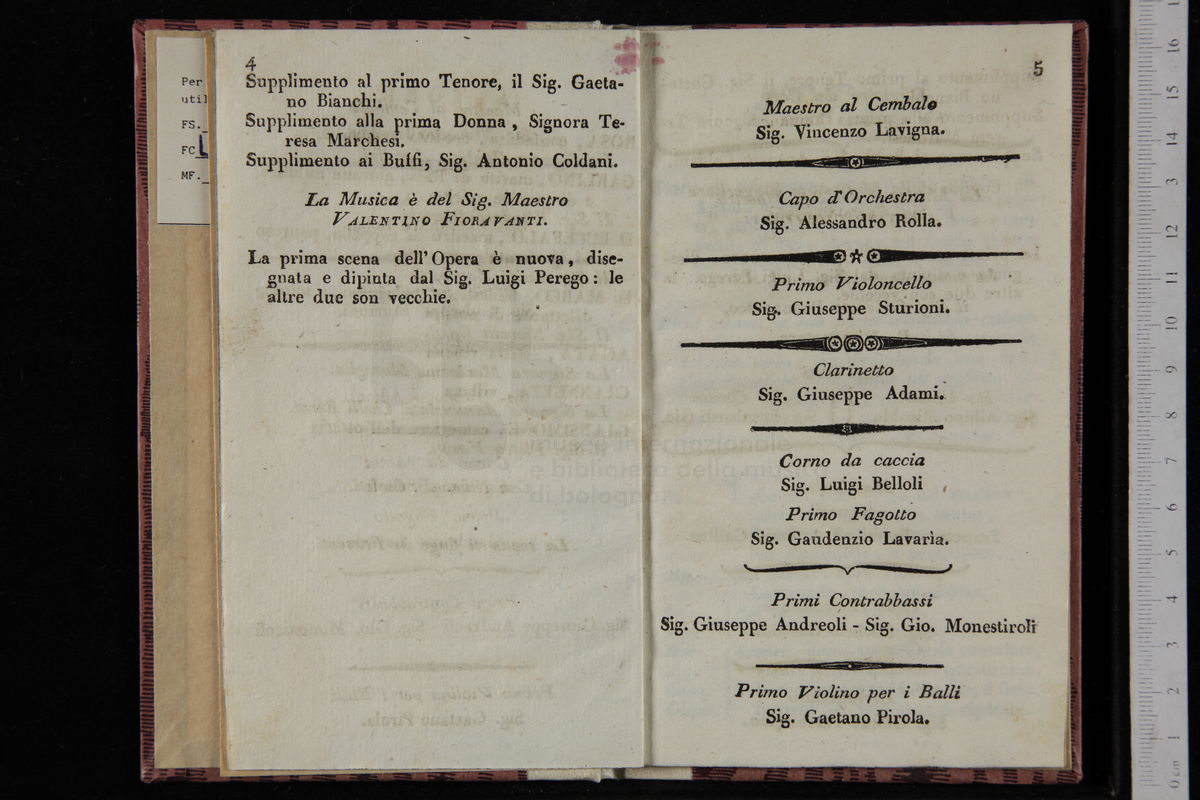 Per
util
FS.
FC
MF.
4
Supplimento al primo Tenore, il Sig. Gaeta-
no Bianchi.
Supplimento alla prima Donna, Signora Te-
resa Marchesi.
Supplimento ai Buffi, Sig. Antonio Coldani.
La Musica è del Sig. Maestro
VALENTINO FIORAVANTI.
La prima scena dell'Opera è nuova, dise-
gnata e dipinta dal Sig. Luigi Perego: le
altre due son vecchie.
5
Maestro al Cembalo
Sig. Vincenzo Lavigna.
Capo d'Orchestra
Sig. Alessandro Rolla.
Primo Violoncello
Sig. Giuseppe Sturioni.
Clarinetto
Sig. Giuseppe Adami.
Corno da caccia
Sig. Luigi Belloli
Primo Fagotto
Sig. Gaudenzio Lavaria.
Primi Contrabbassi
Sig. Giuseppe Andreoli - Sig. Gio. Monestiroli
Primo Violino per i Balli
Sig. Gaetano Pirola.
museo internazionale
e biblioteca della musica
di bologna
0 cm 1 2 3 4 5 6 7 8 9 10 11 12 13 14 15 16